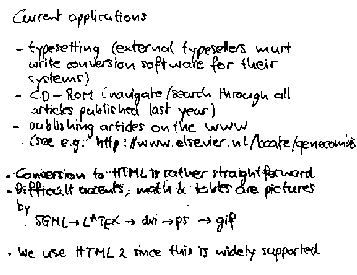 Current applications
- typesetting (external typesetters must
write conversion software for their
systems)
- CD-ROM (navigate/search through all
articles published last year)
- publishing articles on the WWW
(see e.g. "http://www.elsevier.nl/locate/
- Conversion to HTML is rather straightforward
- Difficult accents, math & tables are pictures
by
SGML → LATEX → dvi → ps → gif
- We use HTML 2 since this is widely supported